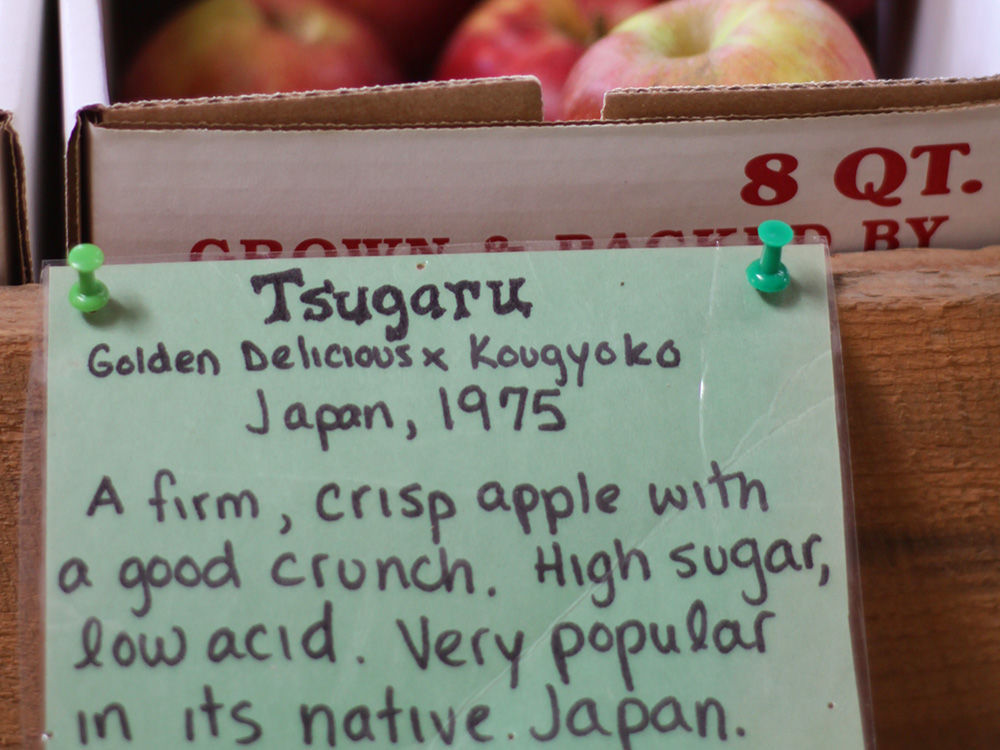 8 QT.
GROWN & PACKED BY
Tsugaru
Golden Delicious x Kougyoko
Japan, 1975
A firm, crisp apple with
a good crunch. High sugar,
low acid. Very popular
in its native Japan.